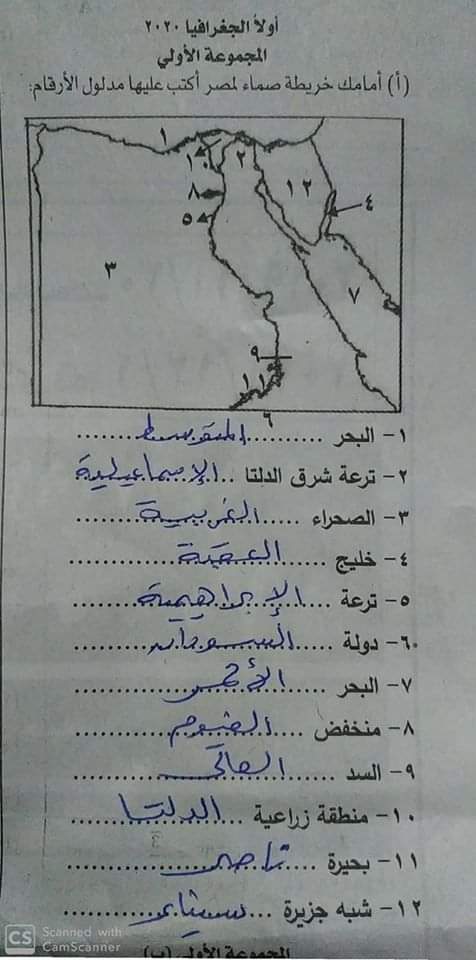 أولاً الجغرافيا ٢٠٢٠
المجموعة الأولي
(أ) أمامك خريطة صماء لمصر أكتب عليها مدلول الأرقام:
١
١٠
٢
٨
١٢
٤
٥
٣
٧
٩
١١
٦
١- البحر ..........المتوسط..........
٢- ترعة شرق الدلتا ..الإسماعيلية..
٣- الصحراء .....الغربية..........
٤- خليج ......العقبة..............
٥- ترعة ......الإبراهيمية..........
٦- دولة ......السودان..........
٧- البحر ......الأحمر..........
٨- منخفض ....الفيوم..........
٩- السد ......العالى..........
١٠- منطقة زراعية ..الدلتا..........
١١- بحيرة ......ناصر..........
١٢- شبه جزيرة ...سيناء..........
المجموعة الأولي (ب)
CS Scanned with
CamScanner